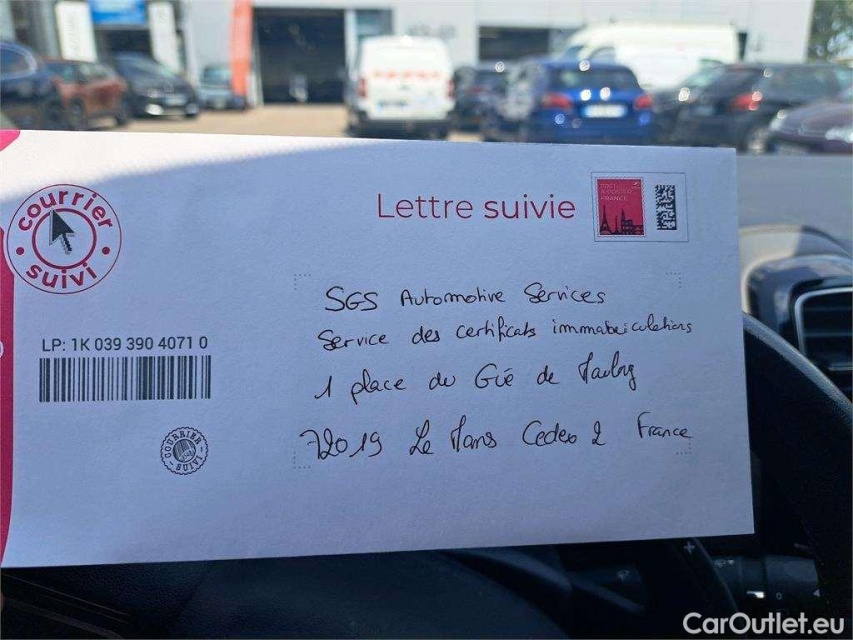 courrier
suivi
Lettre suivie
PRÊT
À POSTER
FRANCE
SGS Automotive Services
Service des certificats immatriculations
LP: 1K 039 390 4071 0
1 place du Gué de Maulny
72019 Le Mans Cedex 2 France
COURRIER
SUIVI
CarOutlet.eu